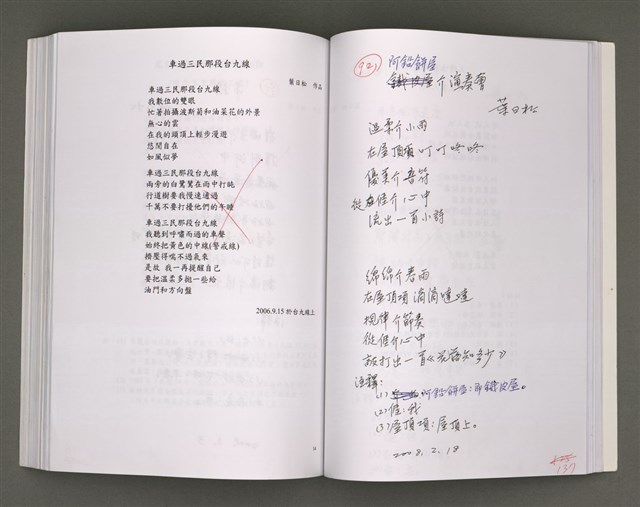 車過三民那段台九線
葉日松 作品
車過三民那段台九線
我數位的雙眼
忙著拍攝波斯菊和油菜花的外景
無心的雲
在我的頭頂上輕步漫遊
悠閒自在
如風似夢
車過三民那段台九線
兩旁的白鷺鷥在雨中打盹
行道樹要我慢速通過
千萬不要打擾他們的午睡
車過三民那段台九線
我聽到呼嘯而過的車聲
始終把黃色的中線(警戒線)
擠壓得喘不過氣來
是故 我一再提醒自己
要把溫柔多拋一些給
油門和方向盤
2006.9.15 於台九線上
(92)
阿鉛餅屋
鐵皮屋介演奏會
葉日松
溫柔介小雨
在屋頂項叮叮咚咚
優美介音符
從𠊎介心中
流出一首小詩
綿綿介春雨
在屋頂項滴滴噠噠
規律介節奏
從𠊎介心中
敲打出一首《花落知多少》
注釋:
(1) 阿鉛餅屋:即鐵皮屋。
(2)𠊎:我
(3)屋頂項:屋頂上。
2008.2.18
137